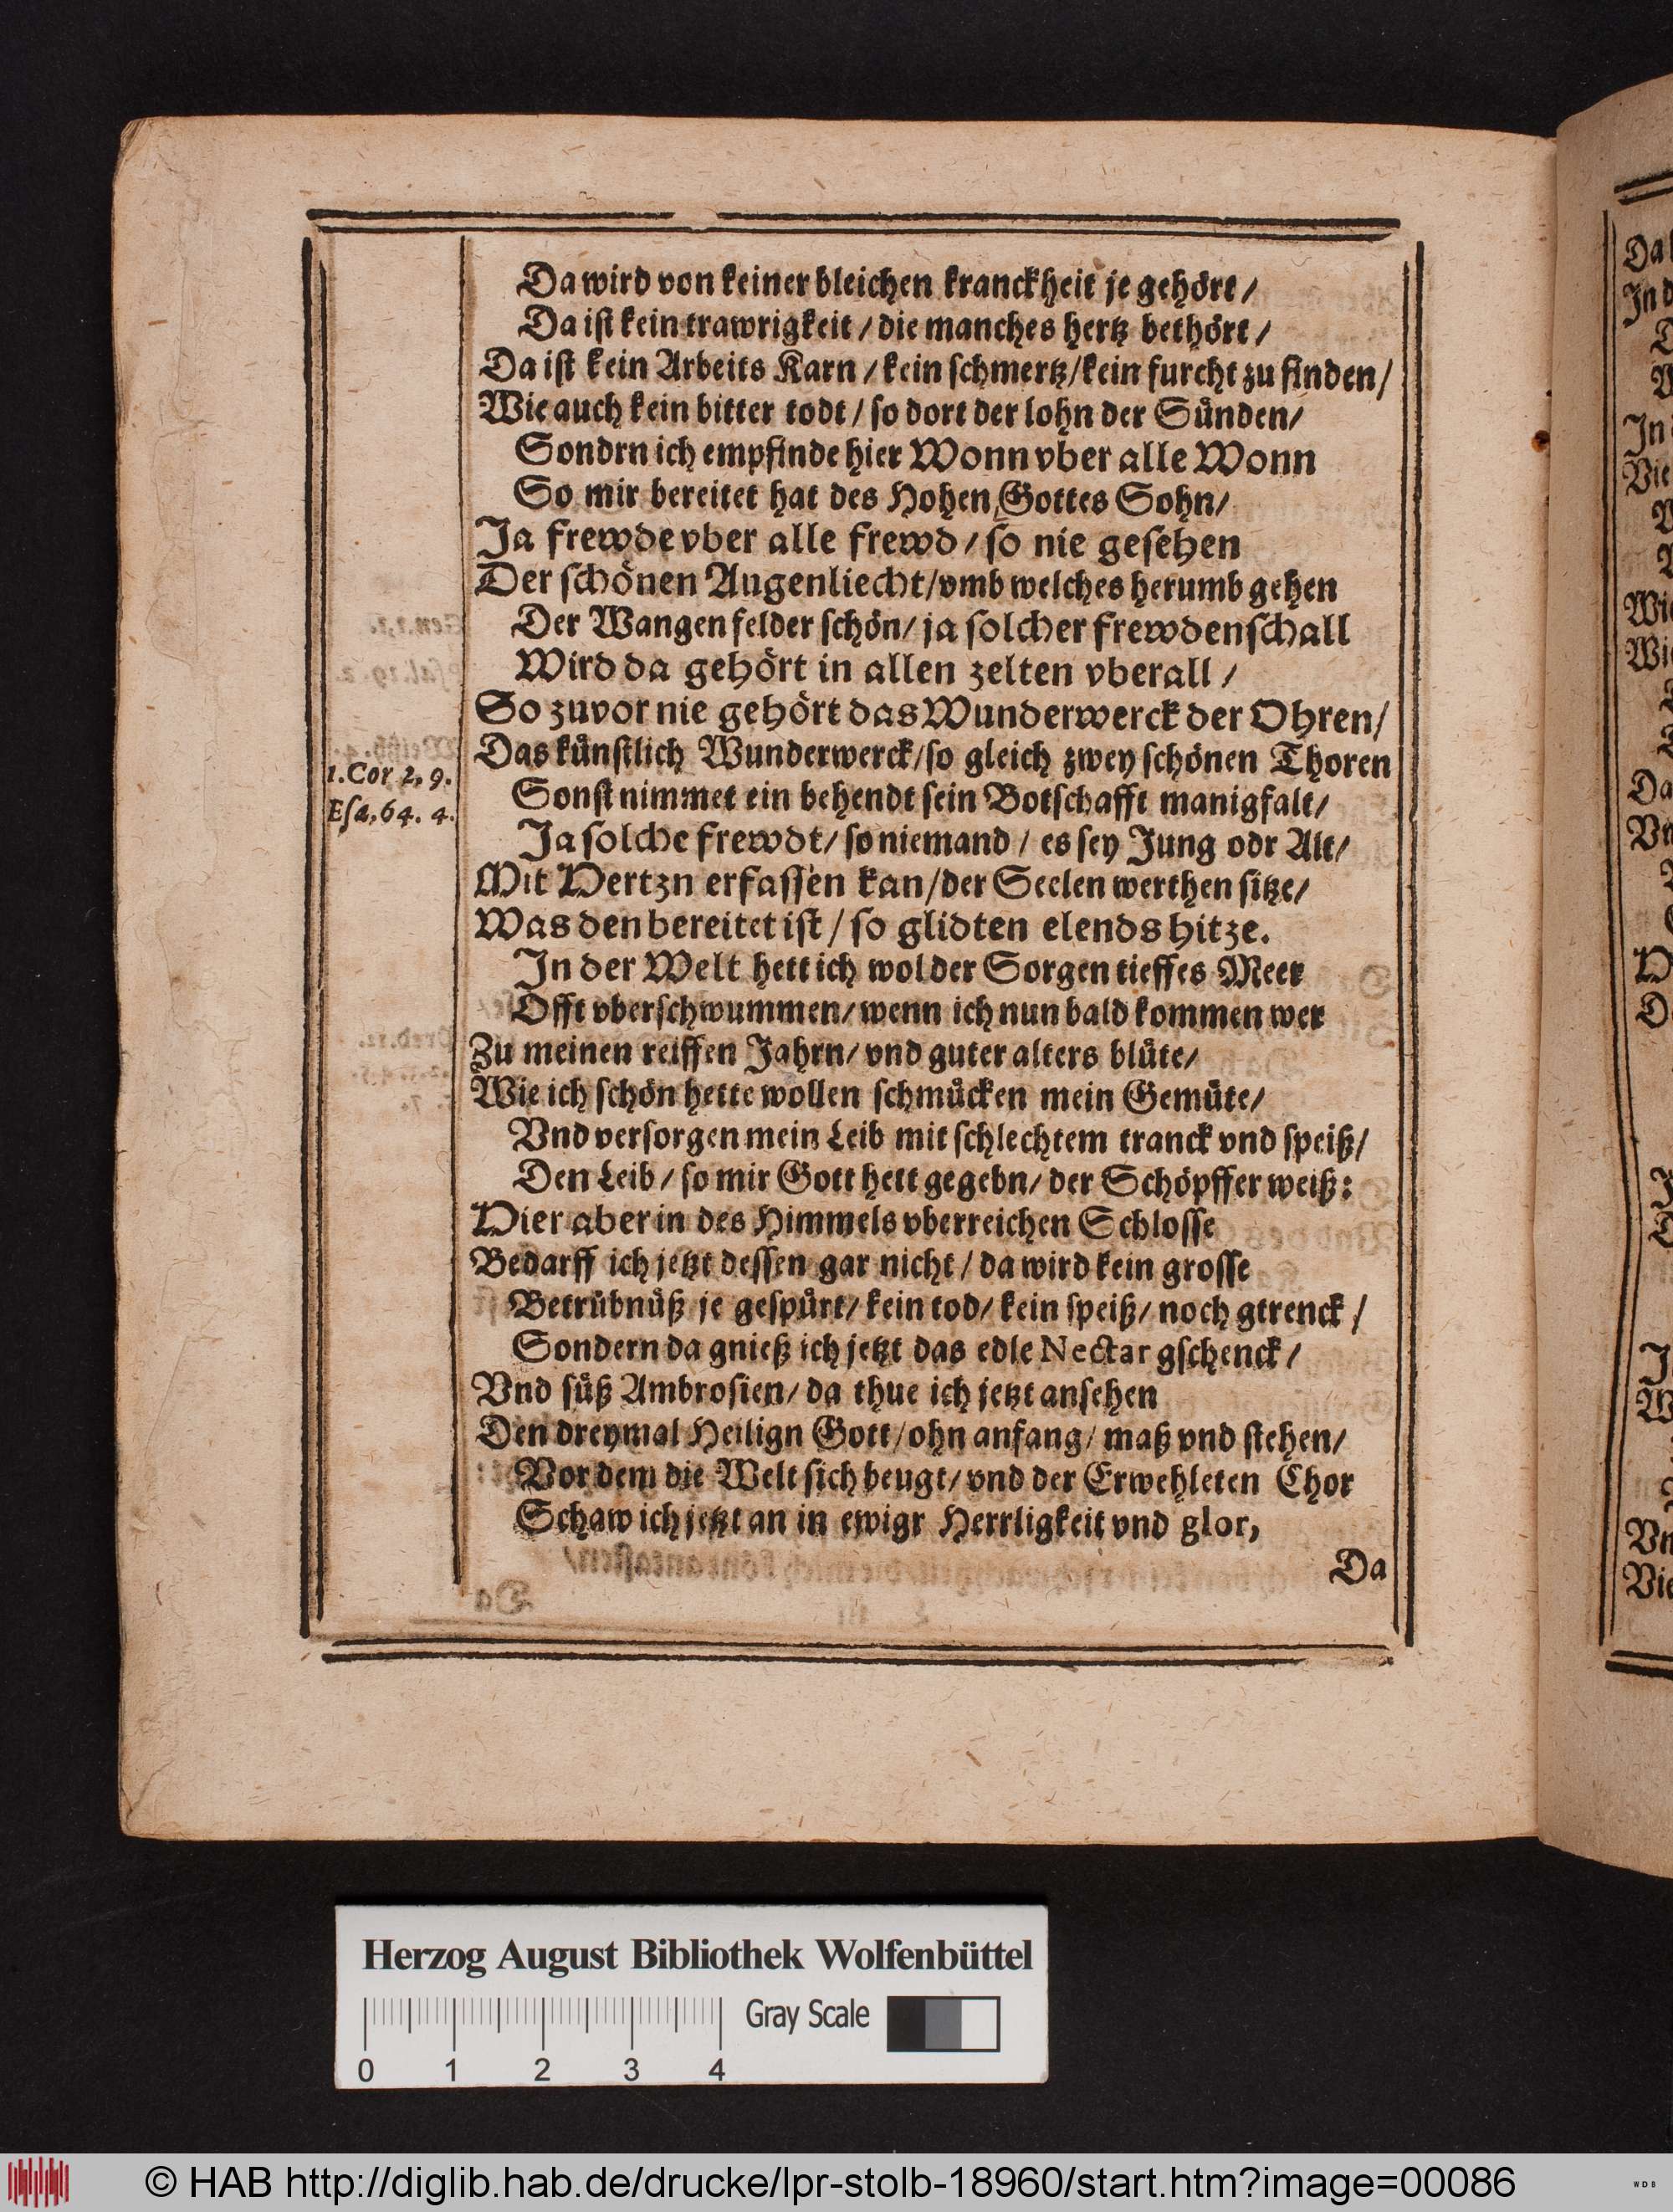 Da wird von keiner bleichen kranckheit je gehört /
Da ist kein trawrigkeit / die manches hertz bethört /
Da ist kein Arbeits Karn / kein schmertz / kein furcht zu finden /
Wie auch kein bitter todt / so dort der lohn der Sünden /
Sondrn ich empfinde hier Wonn vber alle Wonn
So mir bereitet hat des Hohen Gottes Sohn /
Ja frewde vber alle frewd / so nie gesehen
Der schönen Augenliecht / vmb welches herumb gehen
Der Wangen felder schön / ja solcher frewdenschall
Wird da gehört in allen zelten vberall /
So zuvor nie gehört das Wunderwerck der Ohren /
Das künstlich Wunderwerck / so gleich zwey schönen Thoren
1. Cor 2, 9.
Esa, 64. 4.
Sonst nimmet ein behendt sein Botschafft manigfalt /
Ja solche frewdt / so niemand / es sey Jung odr Alt /
Mit Hertzn erfassen kan / der Seelen werthen sitze /
Was den bereitet ist / so glidten elends hitze.
In der Welt hett ich wol der Sorgen tieffes Meer
Offt vberschwummen / wenn ich nun bald kommen wer
Zu meinen reiffen Jahrn / vnd guter alters blüte /
Wie ich schön hette wollen schmücken mein Gemüte /
Vnd versorgen mein Leib mit schlechtem tranck vnd speiß /
Den Leib / so mir Gott hett gegebn / der Schöpffer weiß:
Hier aber in des Himmels vberreichen Schlosse
Bedarff ich jetzt dessen gar nicht / da wird kein grosse
Betrübnüß je gespürt / kein tod / kein speiß / noch gtrenck /
Sondern da gnieß ich jetzt das edle Nectar gschenck /
Vnd süß Ambrosien / da thue ich jetzt ansehen
Den dreymal Heilign Gott / ohn anfang / maß vnd stehen /
Vor dem die Welt sich beugt / vnd der Erwehleten Chor
Schaw ich jetzt an in ewigr Herrligkeit vnd glor,
Da
Herzog August Bibliothek Wolfenbüttel
Gray Scale
0 1 2 3 4
© HAB http://diglib.hab.de/drucke/lpr-stolb-18960/start.htm?image=00086
WDB